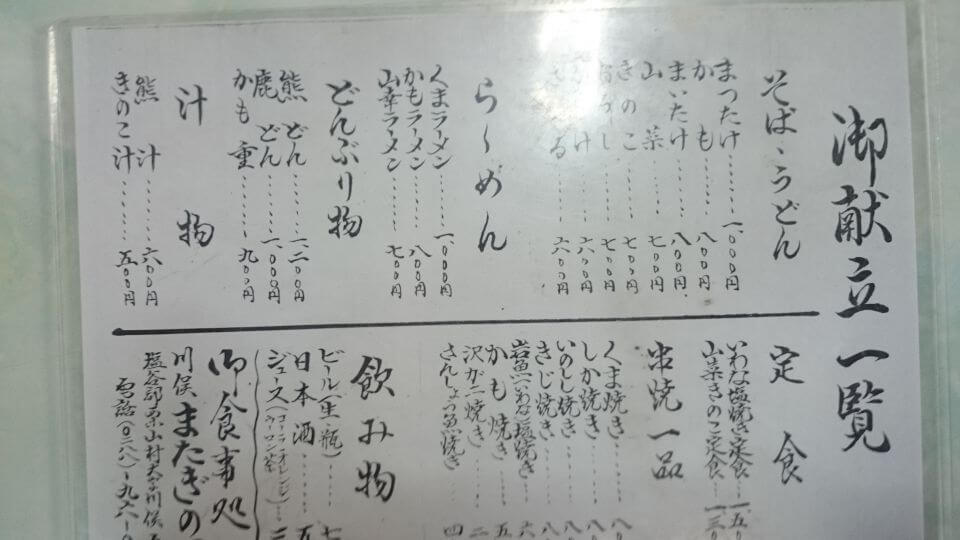 御献立一覧
そば、うどん
まつたけ……一、〇〇〇円
かも……八〇〇円
まいたけ……八〇〇円
山菜……七〇〇円
きのこ……七〇〇円
おろし……七〇〇円
六〇〇円
ざる……六〇〇円
ら〜めん
くまラーメン……一、〇〇〇円
かもラーメン……八〇〇円
山幸ラーメン……七〇〇円
どんぶり物
熊どん……一、二〇〇円
鹿どん……一、〇〇〇円
かも重……九〇〇円
汁物
熊汁……六〇〇円
きのこ汁……五〇〇円
定食
いわな塩焼き定食…一、五〇
山菜きのこ定食…一、三〇
串焼一品
くま焼き……八
しか焼き……八
いのしし焼き……八
きじ焼き……八
岩魚(いわな)塩焼き…六
かも焼き……五
沢がに焼き……二
さんしょう魚焼き……四
飲み物
ビール(生・瓶)……七
日本酒……五
ジュース(コーラ・オレンジ・ウーロン茶)……二
御食事処
川俣またぎの
塩谷郡栗山村大字川俣
電話(〇二八八)-九六-